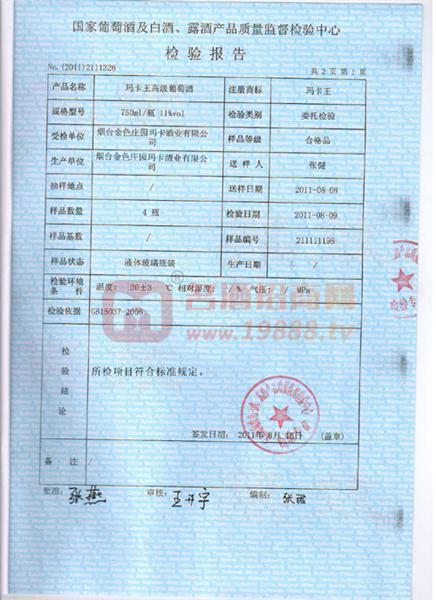 国家葡萄酒及白酒、露酒产品质量监督检验中心
检验报告
No.(2011)2111326 共 2 页 第 1 页
产品名称 玛卡王高级葡萄酒 注册商标 玛卡王
规格型号 750ml/瓶 11%vol 检验类别 委托检验
受检单位 烟台金色庄园玛卡酒业有限公司 样品等级 合格品
生产单位 烟台金色庄园玛卡酒业有限公司 送样人 张健
抽样地点 / 送样日期 2011-08-08
样品数量 4 瓶 检验日期 2011-08-09
样品基数 / 样品编号 211111196
样品状态 液体玻璃瓶装 生产日期 /
检验环境条件 温度: 20±3 ℃ 相对湿度: / % 气压: / MPa
检验依据 GB15037-2006
名酒招商网
®
www.19888.tv
检验结论 所检项目符合标准规定。
签发日期: 2011年 8月 16日 (盖章)
备注 /
批准: 张燕 审核: 王开宇 编制: